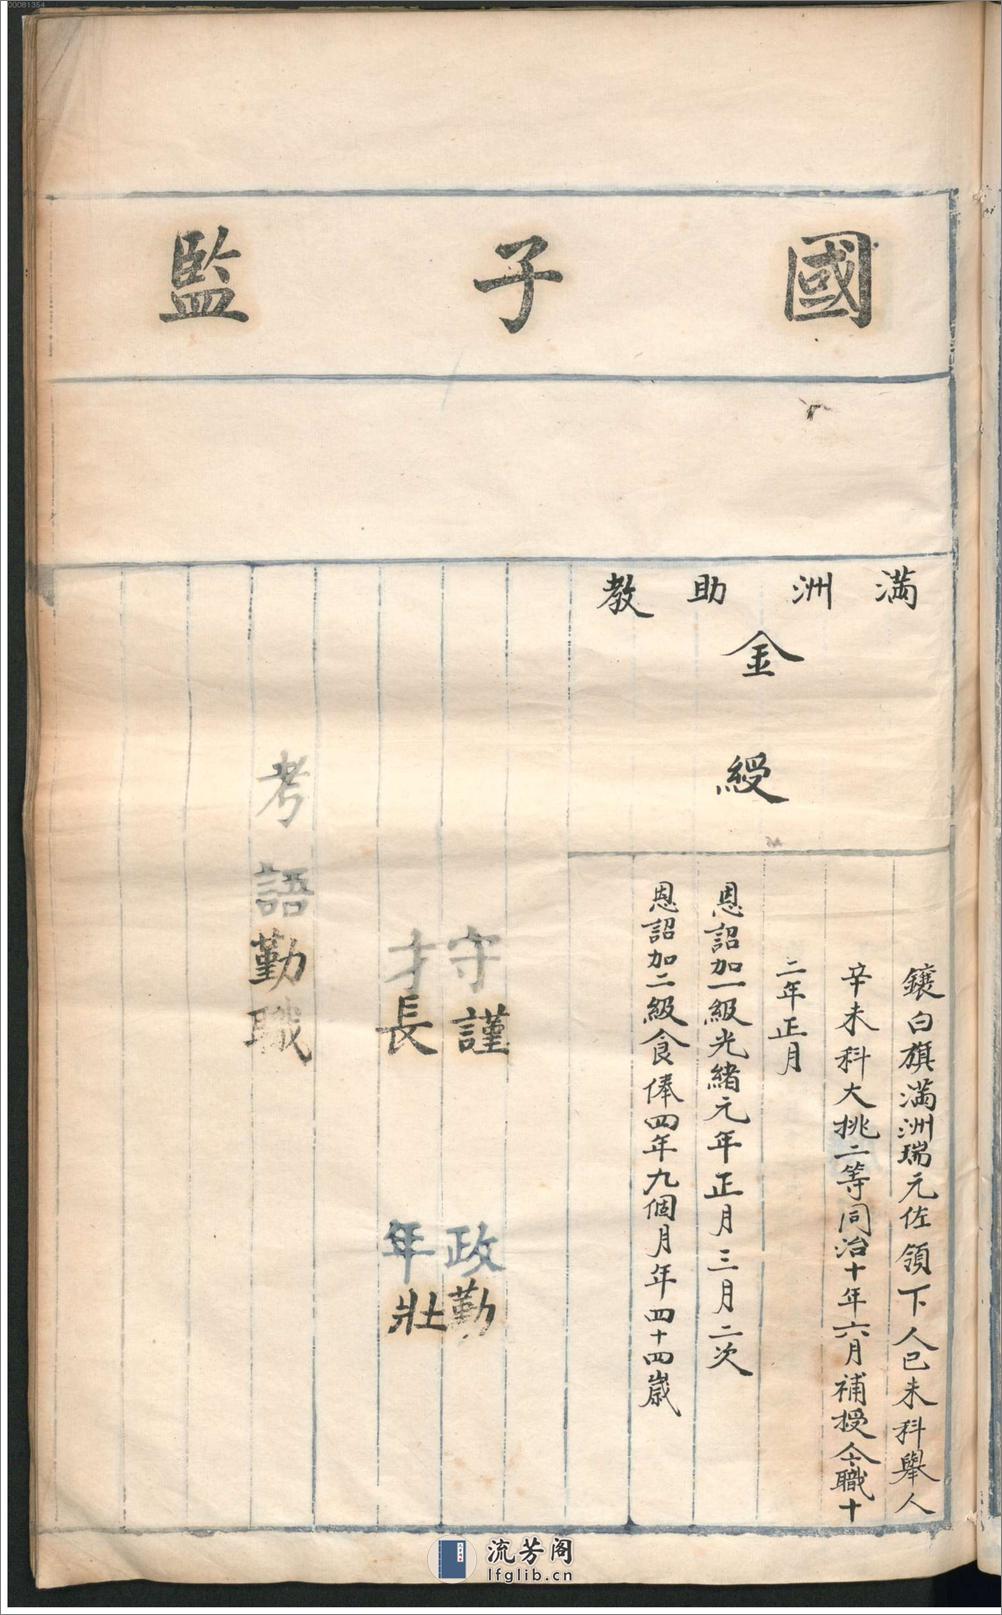 00081354
國子監
滿洲助教
金綬
鑲白旗滿洲瑞元佐領下人己未科舉人
辛未科大挑二等同治十年六月補授今職十
二年正月
恩詔加一級光緒元年正月三月二次
恩詔加二級食俸四年九個月年四十四歲
守謹 政勤
才長 年壯
考語勤職
流芳阁
lfglib.cn